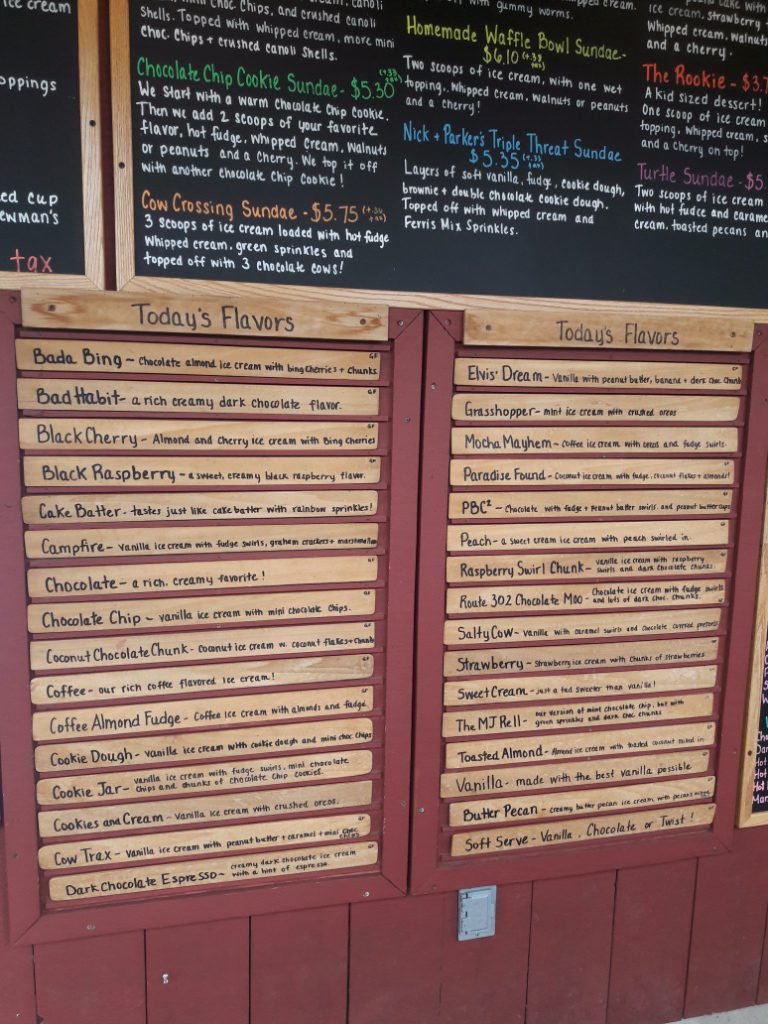 ice cream
oppings
ed cup
ewman's
tax
Choc Chips, and crushed canoli
shells. Topped with whipped cream, more mini
choc. Chips + crushed canoli shells.
Chocolate Chip Cookie Sundae - $5.30
We start with a warm chocolate chip cookie.
Then we add 2 scoops of your favorite
flavor, hot fudge, whipped cream, walnuts
or peanuts and a cherry. We top it off
with another chocolate chip cookie!
Cow Crossing Sundae - $5.75
3 scoops of ice cream loaded with hot fudge
whipped cream, green sprinkles and
topped off with 3 chocolate cows!
with gummy worms.
Homemade Waffle Bowl Sundae -
$6.10
Two scoops of ice cream, with one wet
topping. Whipped cream, walnuts or peanuts
and a cherry!
Nick + Parker's Triple Threat Sundae
$5.35
Layers of soft vanilla, fudge, cookie dough,
brownie + double chocolate cookie dough.
Topped off with whipped cream and
Ferris Mix Sprinkles.
ice cream, strawberry
whipped cream, walnuts
and a cherry.
The Rookie - $3.7
A kid sized dessert!
One scoop of ice cream
topping, whipped cream, s
and a cherry on top!
Turtle Sundae - $5.
Two scoops of ice cream
with hot fudge and carame
cream, toasted pecans an
Today's Flavors
Bada Bing ~ Chocolate almond ice cream with bing cherries + chunks GF
Bad Habit - a rich creamy dark chocolate flavor. GF
Black Cherry - Almond and cherry ice cream with Bing Cherries GF
Black Raspberry - a sweet, creamy black raspberry flavor. GF
Cake Batter - tastes just like cake batter with rainbow sprinkles!
Campfire - vanilla ice cream with fudge swirls, graham crackers + marshmallow
Chocolate - a rich, creamy favorite! GF
Chocolate Chip - vanilla ice cream with mini chocolate chips. GF
Coconut Chocolate Chunk - coconut ice cream w. coconut flakes + chunks GF
Coffee - our rich coffee flavored ice cream! GF
Coffee Almond Fudge - Coffee ice cream with almonds and fudge GF
Cookie Dough - vanilla ice cream with cookie dough and mini choc chips
Cookie Jar - vanilla ice cream with fudge swirls, mini chocolate
chips and chunks of chocolate chip cookies.
Cookies and Cream - Vanilla ice cream with crushed oreos.
Cow Trax - Vanilla ice cream with peanut butter + caramel + mini choc
chips GF
Dark Chocolate Espresso ~ creamy dark chocolate ice cream
with a hint of espresso. GF
Today's Flavors
Elvis' Dream - Vanilla with peanut butter, banana + dark choc chunks GF
Grasshopper - mint ice cream with crushed oreos
Mocha Mayhem - coffee ice cream with oreos and fudge swirls.
Paradise Found - Coconut ice cream with fudge, coconut flakes + almonds! GF
PBC² - Chocolate with fudge + peanut butter swirls, and peanut butter cups GF
Peach - a sweet cream ice cream with peach swirled in. GF
Raspberry Swirl Chunk - vanilla ice cream with raspberry
swirls and dark chocolate chunks. GF
Route 302 Chocolate Moo - Chocolate ice cream with fudge swirls
and lots of dark choc. chunks. GF
Salty Cow - vanilla with caramel swirls and chocolate covered pretzels
Strawberry - Strawberry ice cream with chunks of strawberries GF
Sweet Cream - just a tad sweeter than vanilla! GF
The MJ Rell - our version of mint chocolate chip, but with
green sprinkles and dark choc chunks GF
Toasted Almond - Almond ice cream with toasted coconut mixed in. GF
Vanilla - made with the best vanilla possible GF
Butter Pecan - creamy butter pecan ice cream, with pecans GF
Soft Serve - Vanilla, Chocolate or Twist! GF